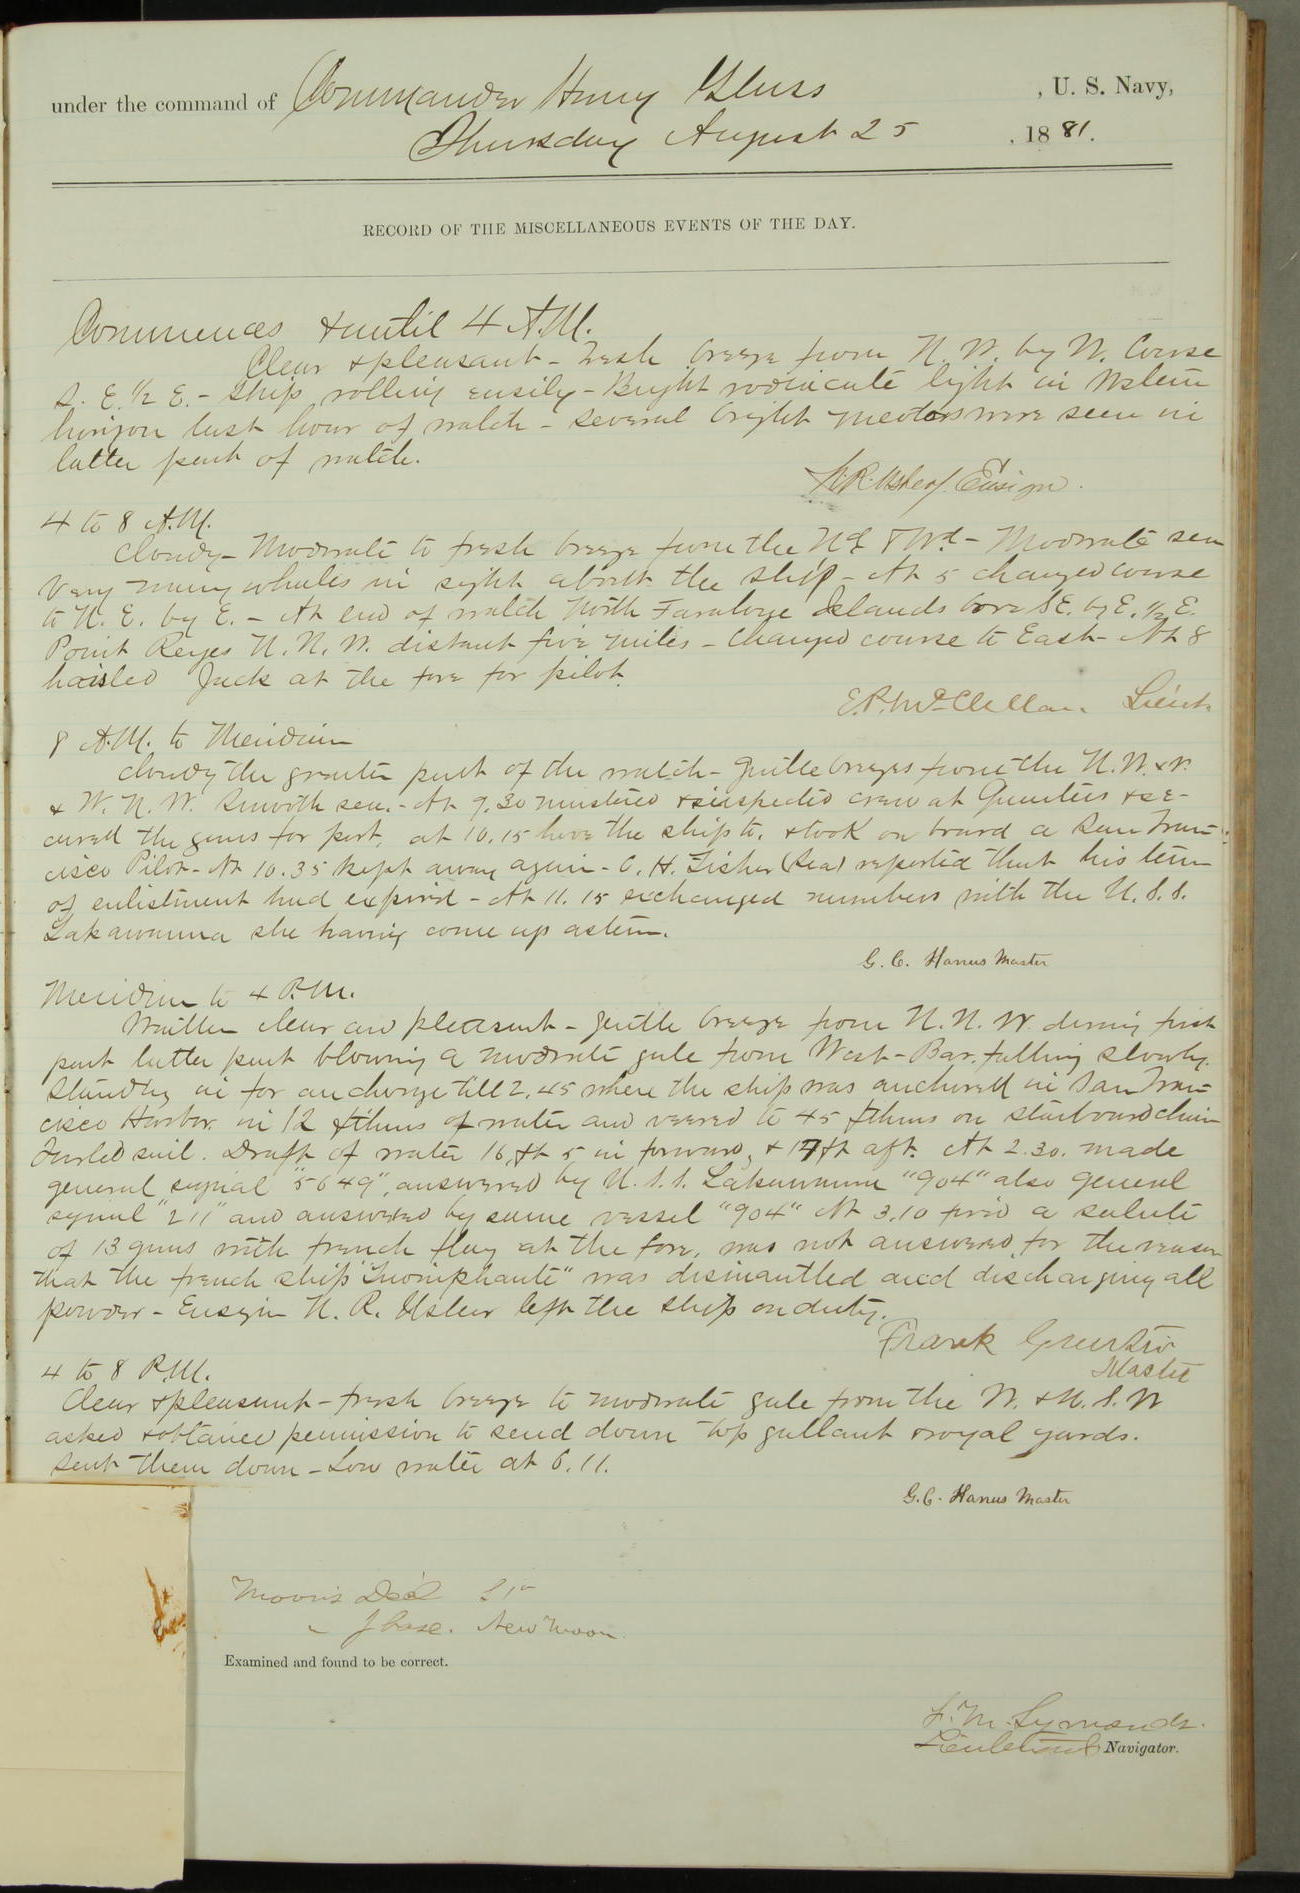 under the command of Commander Henry Glass , U. S. Navy,
Thursday August 25 , 1881.
RECORD OF THE MISCELLANEOUS EVENTS OF THE DAY.
Commences & until 4 A.M.
Clear & pleasant - Fresh breeze from N. W. by W. Course
S. E. 1/2 E. - Ship rolling easily - Bright zodiacate light in Wstern
horizon last hour of watch - several bright meteors were seen in
latter part of watch.
N. R. Usher Ensign.
4 to 8 A.M.
Cloudy - Moderate to fresh breeze from the Nd & Wd - Moderate sea
Very many whales in sight about the ship - At 5 changed course
to N. E. by E. - At end of watch North Faralone Islands bore SE. by E. 1/2 E.
Point Reyes N. N. W. distant five miles - Changed course to East - At 8
hoisted Jack at the fore for pilot.
E.P. McClellan Lieut
8 A.M. to Meridian
Cloudy the greater part of the watch - Gentle breezes from the N. W. & W.
& W. N. W. Smooth sea. - At 9.30 mustered & inspected crew at Quarters & se-
cured the guns for port, at 10.15 hove the ship to, & took on board a San Fran-
cisco Pilot - At 10.35 kept away again - C. H. Fisher (Sea) reported that his term
of enlistment had expired - At 11.15 exchanged numbers with the U. S. S.
Lakawanna she having come up astern.
G. C. Hanus Master
Meridian to 4 P.M.
Weather clear and pleasant - gentle breeze from N. N. W. during first
part latter part blowing a moderate gale from West - Bar. falling slowly.
Standing in for anchorage till 2.45 where the ship was anchored in San Fran-
cisco Harbor in 12 fthms of water and veered to 45 fthms on starboard chain
Furled sail. Draft of water 16 ft 5 in forward, & 17 ft aft. At 2.30. made
general signal "5649", answered by U. S. S. Lakawanna "904" also general
signal "211" and answered by same vessel "904" At 3.10 fired a salute
of 13 guns with french flag at the fore, was not answered for the reason
that the french ship "Triomphante" was dismantled and discharging all
powder - Ensign N. R. Usher left the ship on duty.
Frank
Master
4 to 8 P.M.
Clear & pleasant - fresh breeze to moderate gale from the W. &
asked & obtained permission to send down top gallant & royal yards.
Sent them down - Low water at 6.11.
G. C. Hanus Master
Moon's Decl
" Phase. New Moon
Examined and found to be correct.
F. M. Symonds.
Lieutenant Navigator.